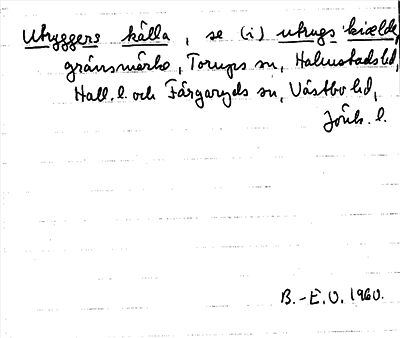 Utryggers källa, se (i) utrugs kiælde,
gränsmärke, Torups sn, Halmstads hd,
Hall. l. och Färgaryds sn, Västbo hd,
Jönk. l.
B.-E.O. 1960.